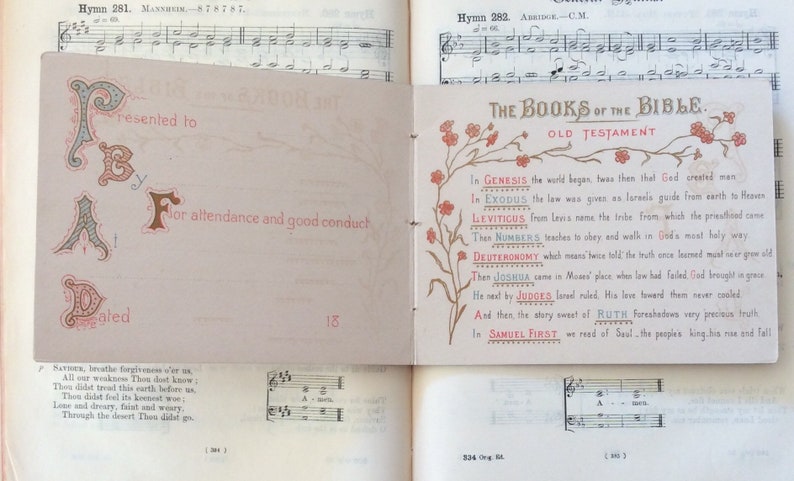 Hymn 281. MANNHEIM.—8 7 8 7 8 7.
= 69.
Hymn 282. ABRIDGE.—C.M.
= 66.
Presented to
By
For attendance and good conduct
At
Dated 18
THE BOOKS OF THE BIBLE.
OLD TESTAMENT
In GENESIS the world began, twas then that God created man
In EXODUS the law was given as Israels guide from earth to Heaven
LEVITICUS from Levis name, the tribe from which the priesthood came
Then NUMBERS teaches to obey, and walk in God's most holy way.
DEUTERONOMY which means "twice told," the truth once learned must ne'er grow old.
Then JOSHUA came in Moses' place, when law had failed, God brought in grace.
He next by JUDGES Israel ruled, His love toward them never cooled.
And then, the story sweet of RUTH Foreshadows very precious truth.
In SAMUEL FIRST we read of Saul_ the people's king_his rise and fall
P SAVIOUR, breathe forgiveness o'er us,
All our weakness Thou dost know;
Thou didst tread this earth before us.
Thou didst feel its keenest woe;
Lone and dreary, faint and weary,
Through the desert Thou didst go.
A - men.
( 384 )
A - - men.
334 Orig. Ed.
( 385 )